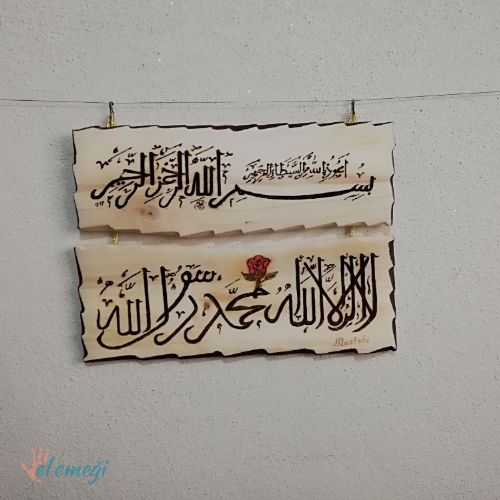 أعوذ بالله من الشيطان الرجيم
بسم الله الرحمن الرحيم
لا إله إلا الله محمد رسول الله
Mustafa
el emeği